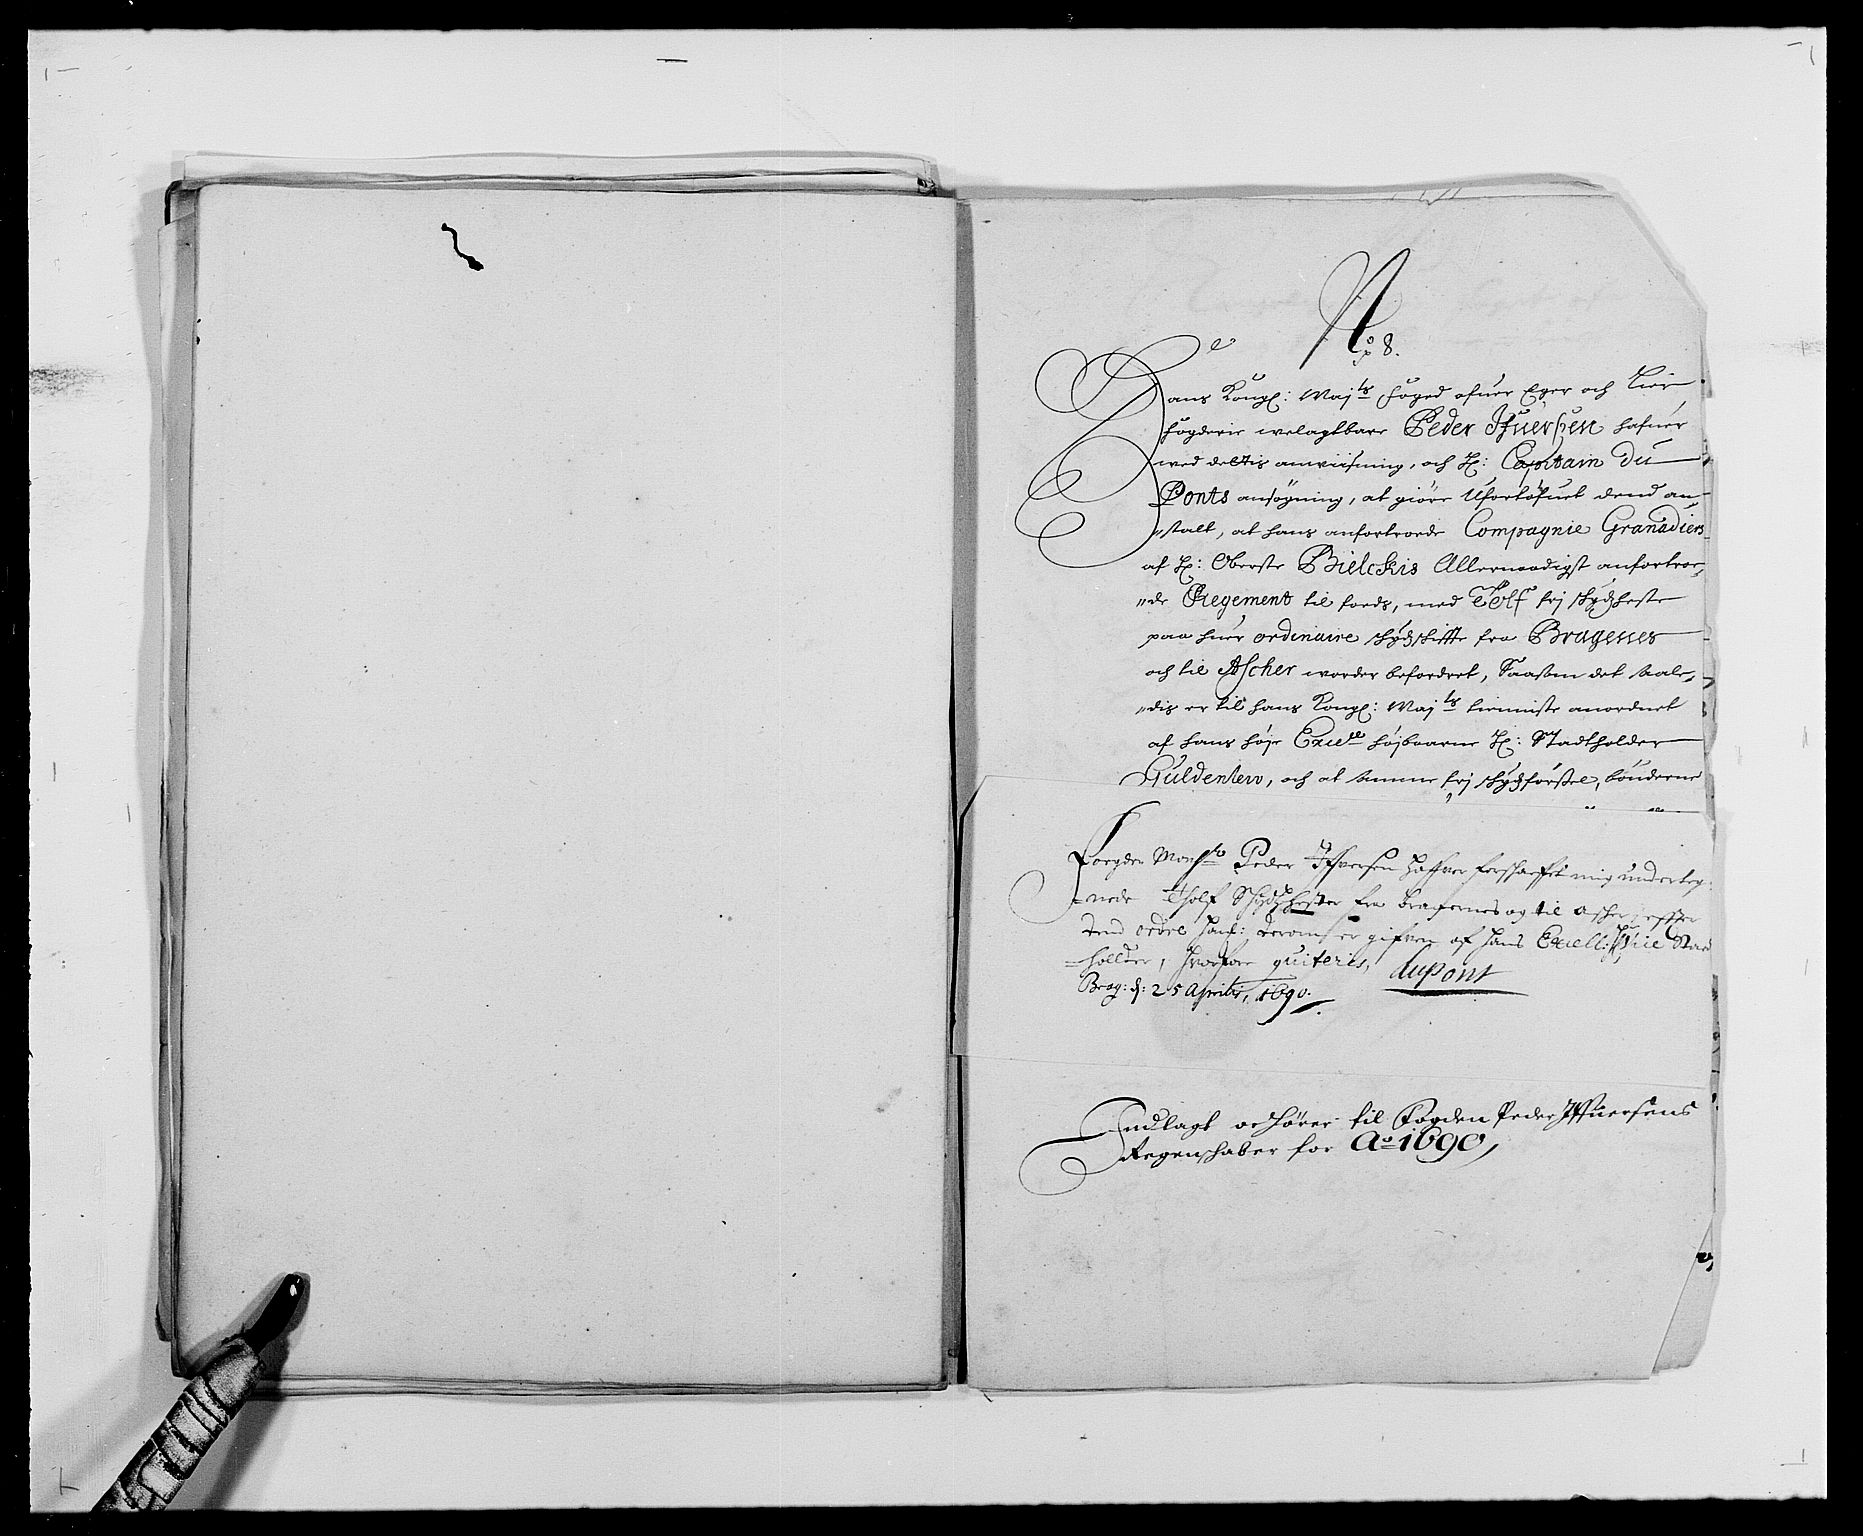 No 8.
Hans Kongl: Mayts foged ofuer Eger och Lier
fogderie welagtbare Peder Ifuersen hafuer
wed dettis anwiisning, och H: Capitain du
Ponts ansøgning, at giøre Ufortøfuet dend an-
stalt, at hans anfortroede Compagnie Granadiers
af H: Oberste Bielckis Allernaadigst anfortroe-
de Regement til foeds, med Tolf frj skydzheste
paa huer ordinaire skydzskiffte fra Bragenes
och til Ascher worder befordret, Saasom det saale-
dis er til hans Kongl: Mayts tienniste anordnet
af hans høje Excelle højbaarne H: Stadtholder
Guldenlew, och at samme frj skydzførsel, bønderne
Foegden Monsr Peder Ifversen haffver forschaffet mig underteg-
nede Tholf Schydzhester fra Bragernes og til Ascher effter
dend ordre som derom er gifven af Hans Excell: Stad-
hollder, hvorfore quiteris,
dupont
Brag: d: 25 Aprilis, 1690.
Indlagt och hører til Fogden Peder Iffuersens
Regenschaber for Ao 1690,